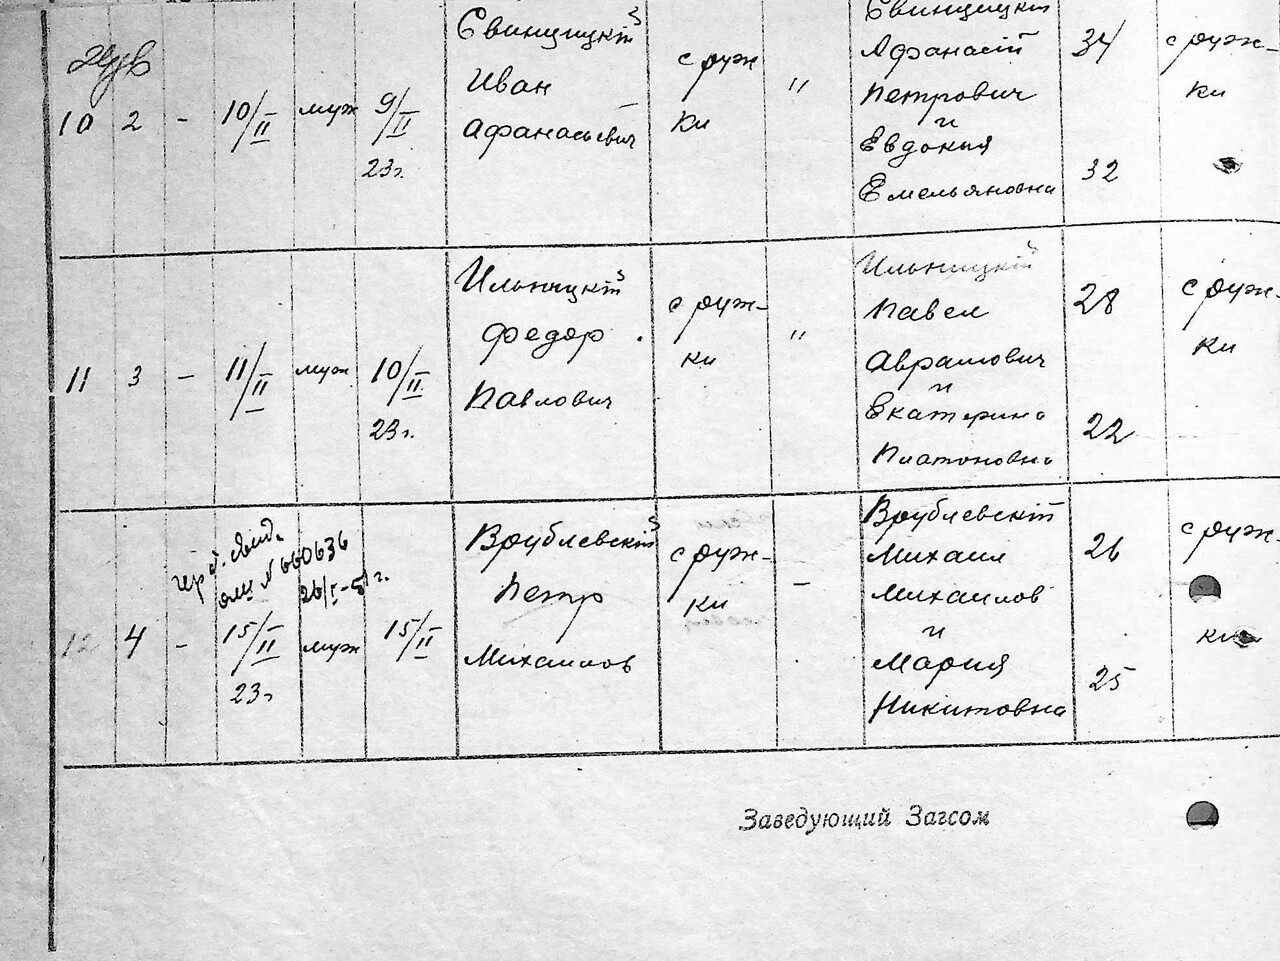 10 2 - 10/II муж 9/II 23г.
Свинцицкій
Иван
Афанасьевич
с руж
ки
"
Свинцицкій
Афанасій
Петрович
и
Евдокия
Емельяновна
34
32
с руж-
ки
11 3 - 11/II муж 10/II 23г.
Ильницкій
Федор
Павлович
с руж-
ки
"
Ильницкій
Павел
Аврамович
и
Екатерина
Платоновна
28
22
с руж-
ки
N 660636
26/I-51г.
12 4 - 15/II 23г муж 15/II
Врублевскій
Петр
Михаилов
с руж-
ки
-
Врублевскій
Михаил
Михаилов
и
Мария
Никитовна
26
25
с руж-
ки
Заведующий Загсом